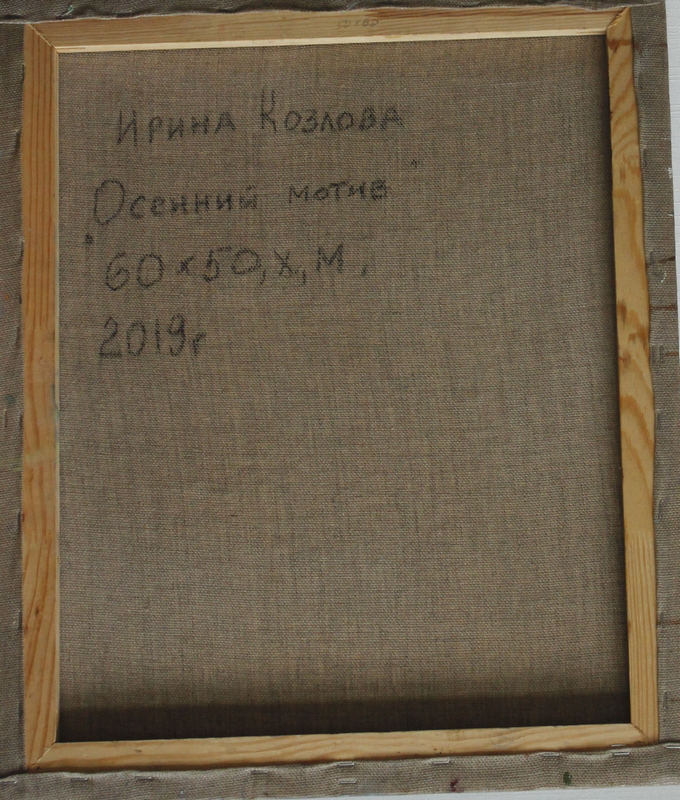 Ирина Козлова
"Осенний мотив"
60х50, х, м,
2019г